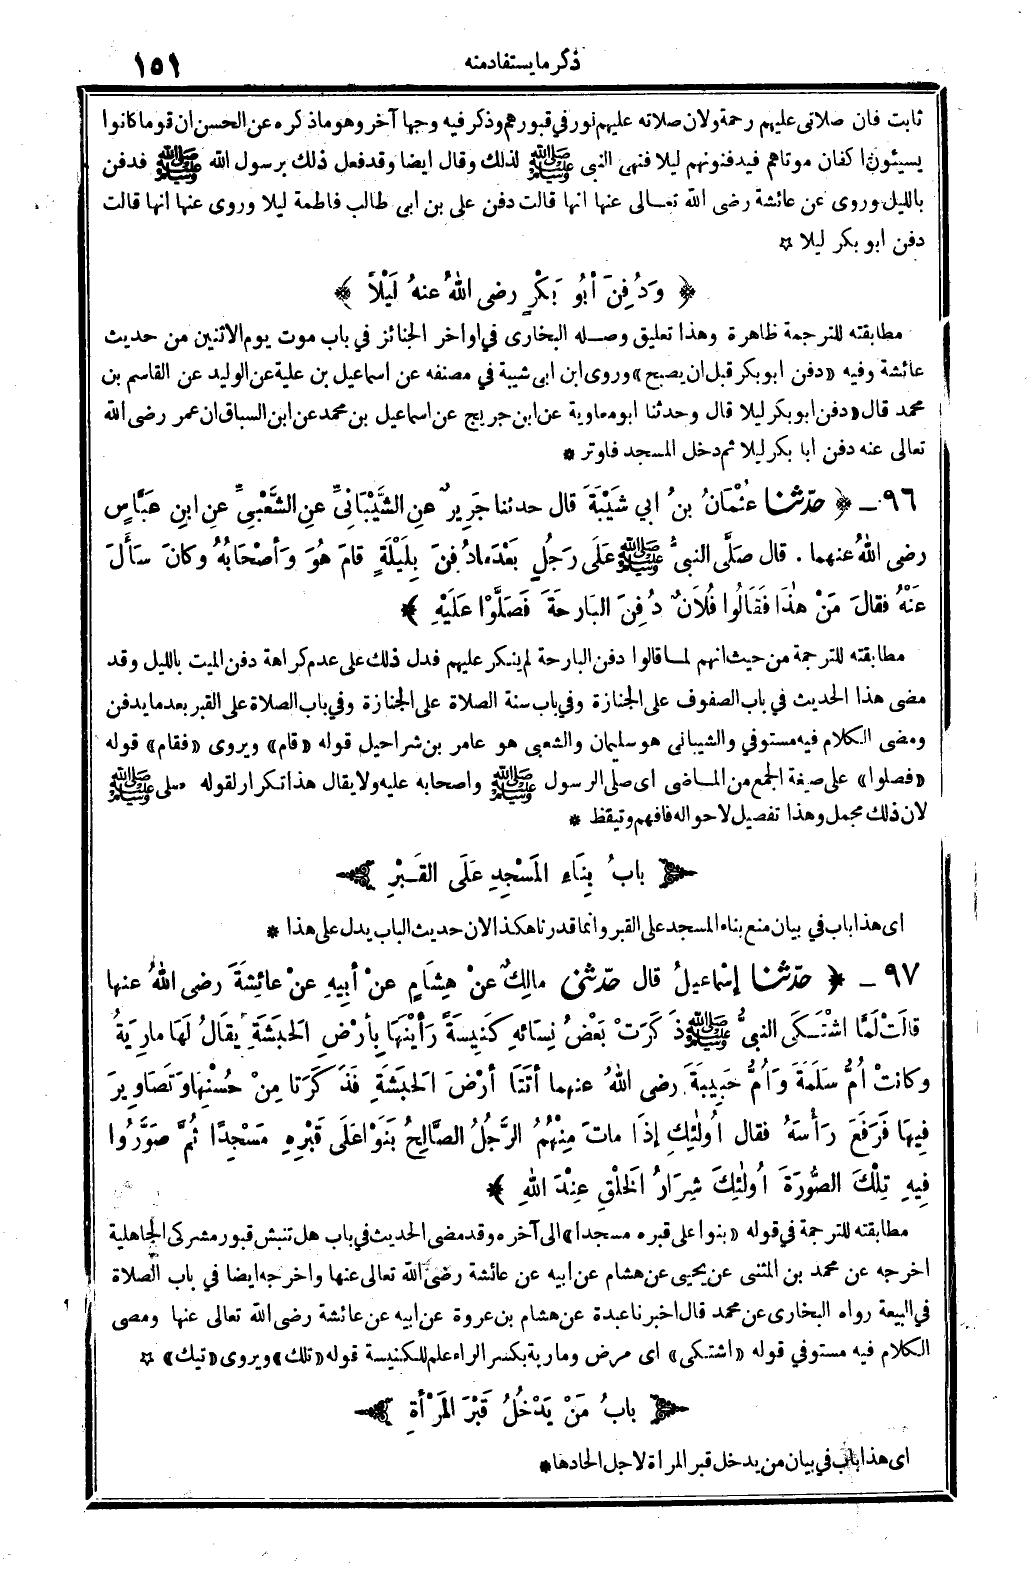 ذكر ما يستفاد منه
١٥١
ثابت فان صلاتى عليهم رحمة ولان صلاته عليهم نور في قبورهم وذكر فيه وجها آخر وهو ماذكره عن الحسن ان قوما كانوا
يسيئون اكفان موتاهم فيدفنونهم ليلا فنهى النبى ﷺ لذلك وقال ايضا وقد فعل ذلك برسول الله ﷺ فدفن
بالليل وروى عن عائشة رضى الله تعـالى عنها انها قالت دفن على بن ابى طالب فاطمة ليلا وروى عنها انها قالت
دفن ابو بكر ليلا ☆
﴿ وَدُفِنَ أَبُو بَكْرٍ رضى اللهُ عنهُ لَيْلاً ﴾
مطابقته للترجمة ظاهرة وهذا تعليق وصـله البخارى في اواخر الجنائز في باب موت يوم الاثنين من حديث
عائشة وفيه «دفن ابو بكر قبل ان يصبح» وروى ابن ابى شيبة في مصنفه عن اسماعيل بن علية عن الوليد عن القاسم بن
محمد قال «دفن ابو بكر ليلا قال وحدثنا ابو معاوية عن ابن جريج عن اسماعيل بن محمد عن ابن السباق ان عمر رضى الله
تعالى عنه دفن ابا بكر ليلا ثم دخل المسجد فاوتر *
٩٦ ـ ﴿ حدّثنا عُثْمَانُ بنُ ابي شَيْبَةَ قال حدثنا جَرِيرٌ عنِ الشَّيْبَانِيِّ عنِ الشَّعْبِيِّ عنِ ابنِ عَبَّاسٍ
رضى اللهُ عنهما . قال صَلَّى النبيُّ ﷺ عَلَى رَجُلٍ بَعْدَ مادُفِنَ بِلَيْلَةٍ قامَ هُوَ وَأصْحَابُهُ وكانَ سَأَلَ
عَنْهُ فقالَ مَنْ هٰذَا فَقَالُوا فُلَانٌ دُفِنَ البَارِحَةَ فَصَلَّوْا عَلَيْهِ ﴾
مطابقته للترجمة من حيث انهم لما قالوا دفن البارحة لم ينكر عليهم فدل ذلك على عدم كراهة دفن الميت بالليل وقد
مضى هذا الحديث في باب الصفوف على الجنازة وفي باب سنة الصلاة على الجنازة وفي باب الصلاة على القبر بعد ما يدفن
ومضى الكلام فيه مستوفي والشيبانى هو سليمان والشعبى هو عامر بن شراحيل قوله «قام» ويروى «فقام» قوله
«فصلوا» على صيغة الجمع من المـاضى اى صلى الرسول ﷺ واصحابه عليه ولا يقال هذا تكرار لقوله صلى ﷺ
لان ذلك مجمل وهذا تفصيل لاحواله فافهم وتيقظ *
بابُ بِنَاءِ المَسْجِدِ عَلَى القَـبْرِ
اى هذا باب في بيان منع بناء المسجد على القبر وانما قدرنا هكذا لان حديث الباب يدل على هذا *
٩٧ ـ ﴿ حدّثنا إسْماعِيلُ قال حدّثنى مالِكٌ عنْ هِشَامٍ عنْ أبيهِ عنْ عائِشَةَ رضى اللهُ عنها
قالَتْ لَمَّا اشْتَـكَى النبيُّ ﷺ ذَكَرَتْ بَعْضُ نِسَائِهِ كَنِيسَةً رَأَيْنَهَا بِأَرْضِ الحَبَشَةِ يُقَالُ لَهَا مارِيَةُ
وكانَتْ أُمُّ سَلَمَةَ وَأُمُّ حَبِيبَةَ رضى اللهُ عنهما أتَتَا أرْضَ الحَبَشَةِ فَذَكَرَتَا مِنْ حُسْنِهَا وَتَصَاوِيرَ
فِيهَا فَرَفَعَ رَأْسَهُ فقال أُولٰئِكِ إذَا ماتَ مِنْهُمُ الرَّجُلُ الصَّالِحُ بَنَوْا عَلَى قَبْرِهِ مَسْجِدًا ثُمَّ صَوَّرُوا
فِيهِ تِلْكَ الصُّورَةَ أُولٰئِكَ شِرَارُ الخَلْقِ عِنْدَ اللهِ ﴾
مطابقته للترجمة في قوله «بنوا على قبره مسجدا» الى آخره وقد مضى الحديث في باب هل تنبش قبور مشركى الجاهلية
اخرجه عن محمد بن المثنى عن يحيى عن هشام عن ابيه عن عائشة رضى الله تعالى عنها واخرجه ايضا في باب الصلاة
في البيعة رواه البخارى عن محمد قال اخبرنا عبدة عن هشام بن عروة عن ابيه عن عائشة رضى الله تعالى عنها ومضى
الكلام فيه مستوفي قوله «اشتكى» اى مرض ومارية بكسر الراء علم للكنيسة قوله «تلك» ويروى «تيك» ☆
بابُ مَنْ يَدْخُلُ قَبْرَ المَرْأةِ
اى هذا باب في بيان من يدخل قبر المرأة لاجل الحادها *